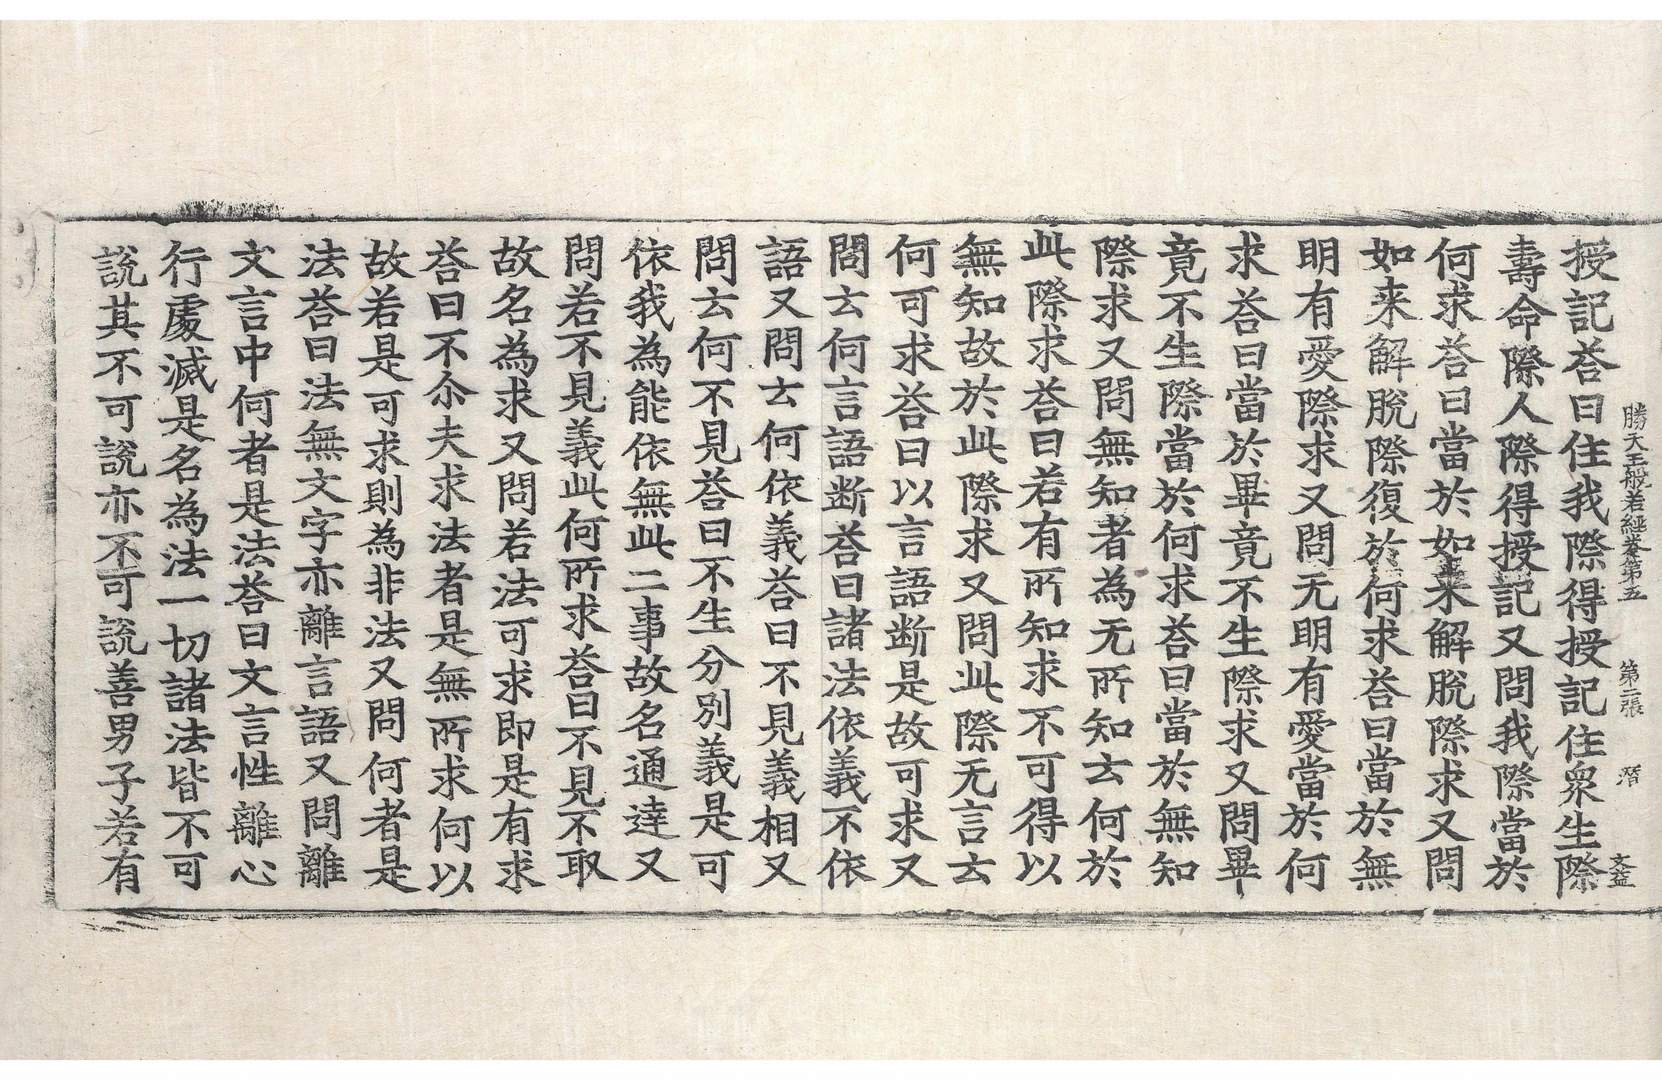 勝天王般若經卷第五 第二張 潛 文益
授記荅曰住我際得授記住衆生際
壽命際人際得授記又問我際當於
何求荅曰當於如来解脫際求又問
如来解脫際復於何求荅曰當於無
明有愛際求又問无明有愛當於何
求荅曰當於畢竟不生際求又問畢
竟不生際當於何求荅曰當於無知
際求又問無知者為无所知云何於
此際求荅曰若有所知求不可得以
無知故於此際求又問此際无言云
何可求荅曰以言語断是故可求又
問云何言語断荅曰諸法依義不依
語又問云何依義荅曰不見義相又
問云何不見荅曰不生分別義是可
依我為能依無此二事故名通達又
問若不見義此何所求荅曰不見不取
故名為求又問若法可求即是有求
荅曰不尒夫求法者是無所求何以
故若是可求則為非法又問何者是
法荅曰法無文字亦離言語又問離
文言中何者是法荅曰文言性離心
行處滅是名為法一切諸法皆不可
說其不可說亦不可說善男子若有